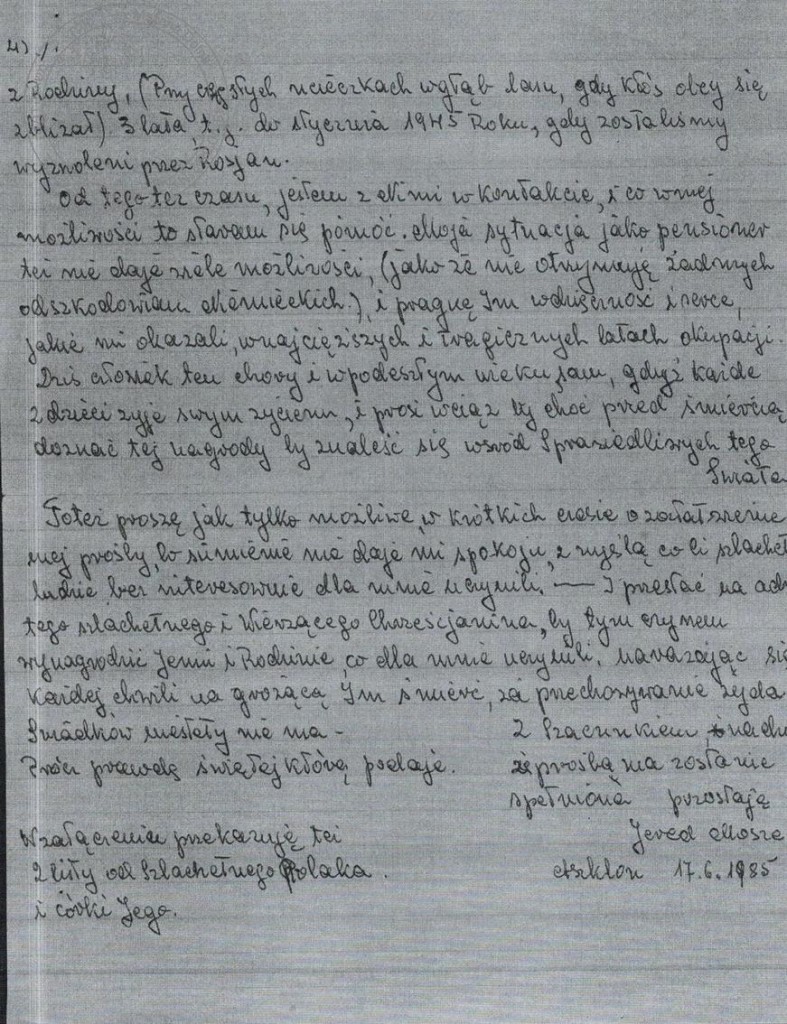 4) /.
z Rodziny, (Przy częstych ucieczkach wgłąb lasu, gdy ktoś obcy się
zbliżał) 3 lata, t.j. do stycznia 1945 Roku, gdy zostaliśmy
wyzwoleni przez Rosjan.
Od tego też czasu, jestem z Nimi w kontakcie, i co w mej
możliwości to staram się pomóc. Moja sytuacja jako pensioner
też nie daje wiele możliwości, (jako że nie otrzymuję żadnych
odszkodowań Niemieckich.), i pragnę Im wdzięczność i serce,
jakie mi okazali, w najcięższych i tragicznych latach okupacji.
Dziś człowiek ten chory i w podeszłym wieku sam, gdyż każde
z dzieci żyje swym życiem, i prosi wciąż by choć przed śmiercią
doznać tej nagrody by znaleść się wśród Sprawiedliwych tego
Świata
Toteż proszę jak tylko możliwe, w krótkich czasie o załatwienie
mej prośby, bo sumienie nie daje mi spokoju, z myślą co Ci szlachet
ludzie bez interesownie dla mnie uczynili. — I przesłać na adr
tego szlachetnego i Wierzącego Chrześcijanina, by tym czynem
wynagrodzić Jemu i Rodzinie, co dla mnie uczynili, narażając się
każdej chwili na grożącą Im śmierć, za przechowywanie żyda
Świadków niestety nie ma –
Prócz prawdy świętej którą podaję.
Z Szacunkiem i nadzi
że prośba ma zostanie
spełniona pozostaję
Jered Mosze
Aszklon 17.6.1985
W załączeniu przekazuję też
2 listy od Szlachetnego Polaka.
i córki Jego.